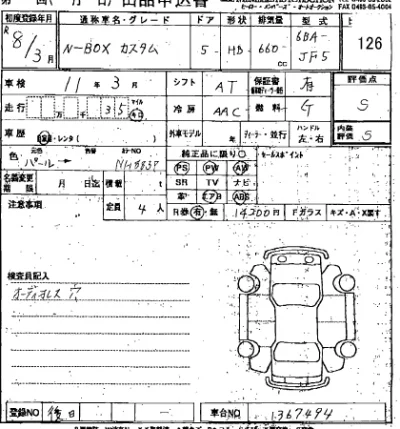 出品申込書
初度登録年月 通称車名・グレード ドア 形状 排気量 型式
R 8/3月 N-BOX カスタム 5 - HB - 660 - cc 6BA- JF5 126
車検 11年3月 シフト AT 保証書 有 評価点
走行 万 千 35 マイル キロ 冷房 AAC 燃料 G S
車歴 自家・レンタ( ) 外車モデル 年 ディーラー・並行 ハンドル 左・右 内装評価 S
色 パール カラーNO NH883P 純正品に限り○ セールスポイント
PS PW AW
名義変更期限 月 日迄 積載 t SR TV ナビ
革 エアB ABS
注意事項 定員 4人 R券 有・無 14200円 Fガラス キズ・A・X要す
検査員記入
オーディオレス 穴
登録NO 後日 車台NO 1367494